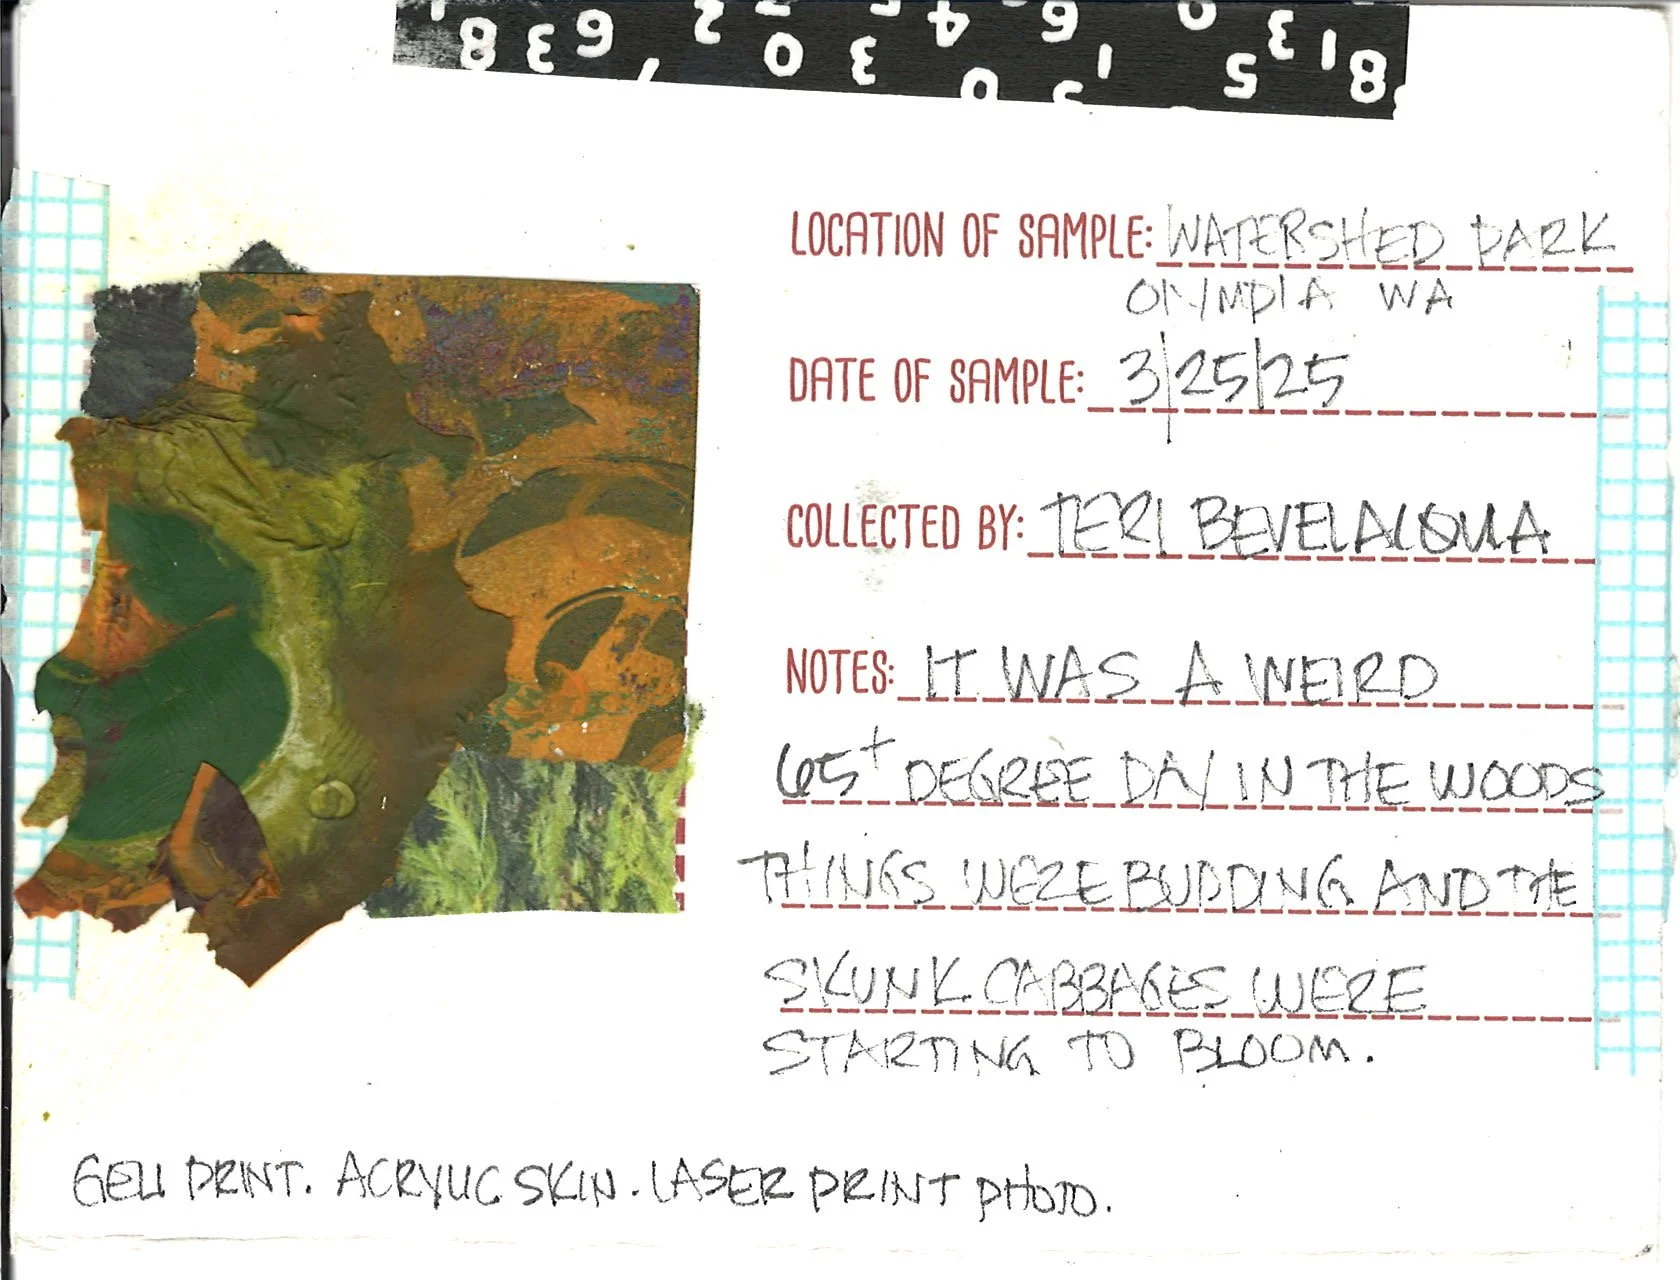 LOCATION OF SAMPLE: WATERSHED PARK
OLYMPIA WA
DATE OF SAMPLE: 3/25/25
COLLECTED BY: TERI BEVELACQUA
NOTES: IT WAS A WEIRD
65+ DEGREE DAY IN THE WOODS
THINGS WERE BUDDING AND THE
SKUNK CABBAGES WERE
STARTING TO BLOOM.
GELLI PRINT. ACRYLIC SKIN. LASER PRINT PHOTO.